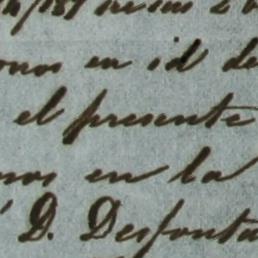 onos en id de
el presente
nos en la
D. Desfonta